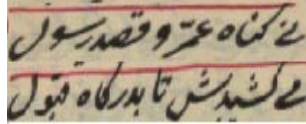 بی گناه عمر و قصد رسول
می کشیدش تا بدرگاه قبول